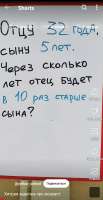 Shorts
Отцу 32 года,
сыну 5 лет.
Через сколько
лет отец будет
в 10 раз старше
сына?
Подписаться